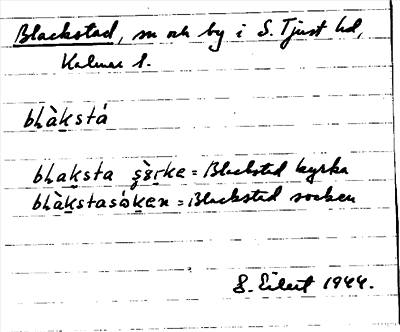 Blackstad, sn och by i S. Tjust hd,
Kalmar l.
bḷàkstá
bḷaksta çỳrke = Blackstad kyrka
bḷàkstasóken = Blackstad socken
S. Eilert 1944.